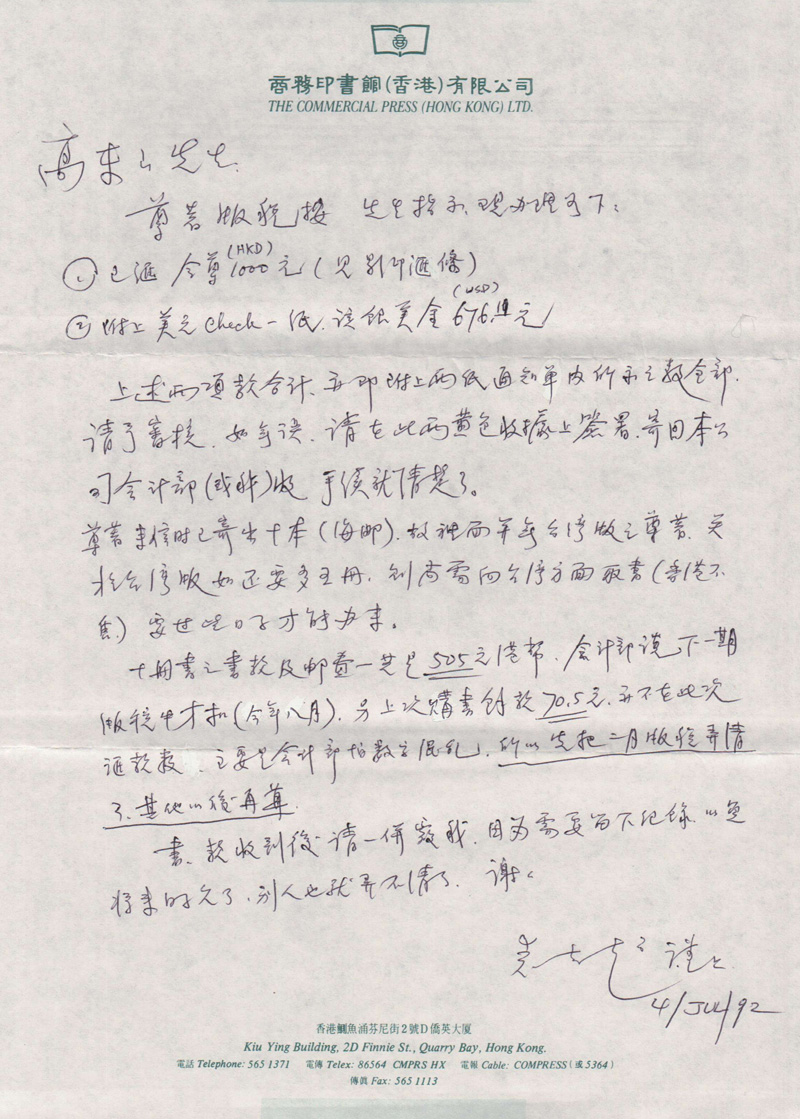 商務印書館(香港)有限公司
THE COMMERCIAL PRESS (HONG KONG) LTD.
高 先生:
尊著版稅按 先生指示,現办理如下:
① 已滙令尊(HKD)1000元(見影印滙條)
② 附上美元check一紙,該銀美金(USD)676元
上述两項款合計,亦即附上两紙通知單內所示之數全部.
請予審核,如無誤,請在此两黄色收據上簽署,寄回本公
司会计部(或我)收 手续就清楚了。
尊著來信时已寄出十本(海邮),故裡面並無台湾版之尊著,关
於台湾版如还要多 册,則尚需向台湾方面取書(香港不
售)要过些日子才能办来。
十冊書之書款及邮費一共是505元港幣,会计部说下一期
版稅中才扣(今年八月),另上次購書餘款70.5元,並不在此次
滙款裡,主要是会计部怕數字混乱,所以先把二月版稅弄清
了,其他以後再算.
書、款收到後請一併 我,因为需要留下纪錄,以免
将來时久了,别人也就弄不清了. 謝謝
謹上
4/JUL/92
香港鰂魚涌芬尼街2號D僑英大厦
Kiu Ying Building, 2D Finnie St., Quarry Bay, Hong Kong.
電話 Telephone: 565 1371 電傳 Telex: 86564 CMPRS HX 電報 Cable: COMPRESS (或 5364)
傳眞 Fax: 565 1113